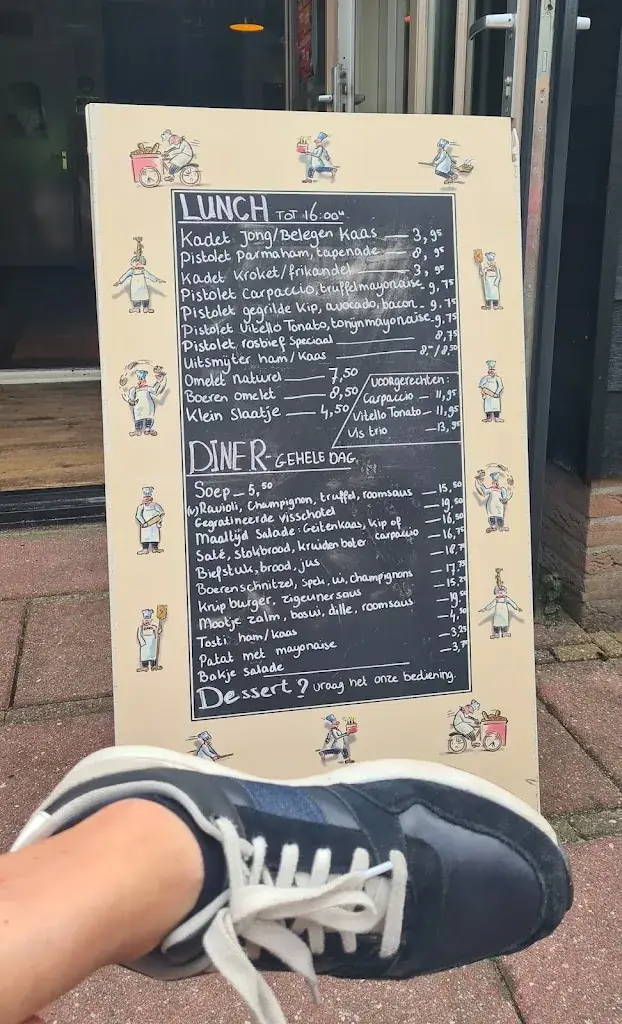 LUNCH TOT 16:00u
Kadet Jong/Belegen Kaas — 3,95
Pistolet Parmaham, tapenade 8,95
Kadet Kroket/frikandel — 3,95
Pistolet Carpaccio, truffelmayonaise 9,75
Pistolet gegrilde Kip, avocado, bacon - 9.75
Pistolet Vitello Tonato, tonijnmayonaise 9.75
Pistolet rosbief Speciaal — 8,75
Uitsmijter ham/kaas — 8,-/8,50
Omelet naturel — 7,50
Boeren omelet — 8,50
Klein Slaatje — 4,50
Voorgerechten:
Carpaccio — 11,95
Vitello Tonato — 11,95
Vis trio —13,95
DINER - GEHELE DAG
Soep — 5,50
(v) Ravioli, Champignon, truffel, roomsaus —15,50
Gegratineerde visschotel —19,50
Maaltijd Salade: Geitenkaas, Kip of carpaccio —16,50
Saté, stokbrood, kruiden boter —16,75
Biefstuk, brood, jus
Boerenschnitzel, spek, ui, champignons
Knip burger, zigeunersaus
Mootje zalm, bosui, dille, roomsaus
Tosti ham/kaas —4,50
Patat met mayonaise —3,25
Bakje salade
Dessert? vraag het onze bediening.